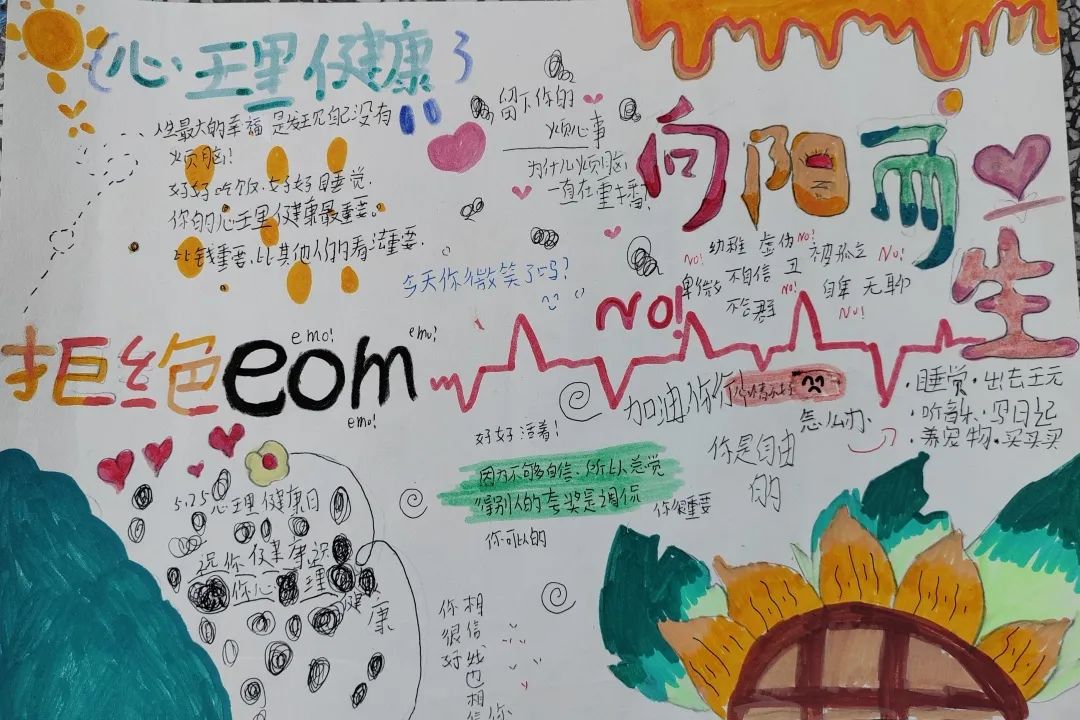 心理健康
人生最大的幸福是发现自己没有
烦脑!
好好吃饭.好好睡觉.
你的心理健康最重要。
比钱重要.比其他人的看法重要.
今天你微笑了吗?
留下你的
烦心事
为什么烦脑,
一直在重播!
向阳而生
NO! 幼稚 虚伪 NO! 被孤立 NO!
卑微 不自信 丑 NO! 自卑 无聊
不合群 NO!
NO!
拒绝eom
emo!
emo!
emo!
加油你你
怎么办
·睡觉·出去玩
·听音乐·写日记
·养宠物·买买买
好好活着!
因为不够自信.所以总觉
得别人的夸奖是调侃
你可以的
你是自由
的
你很重要
5.25心理健康日
还你健康
你心理
健康
你很好
相信我也相信你